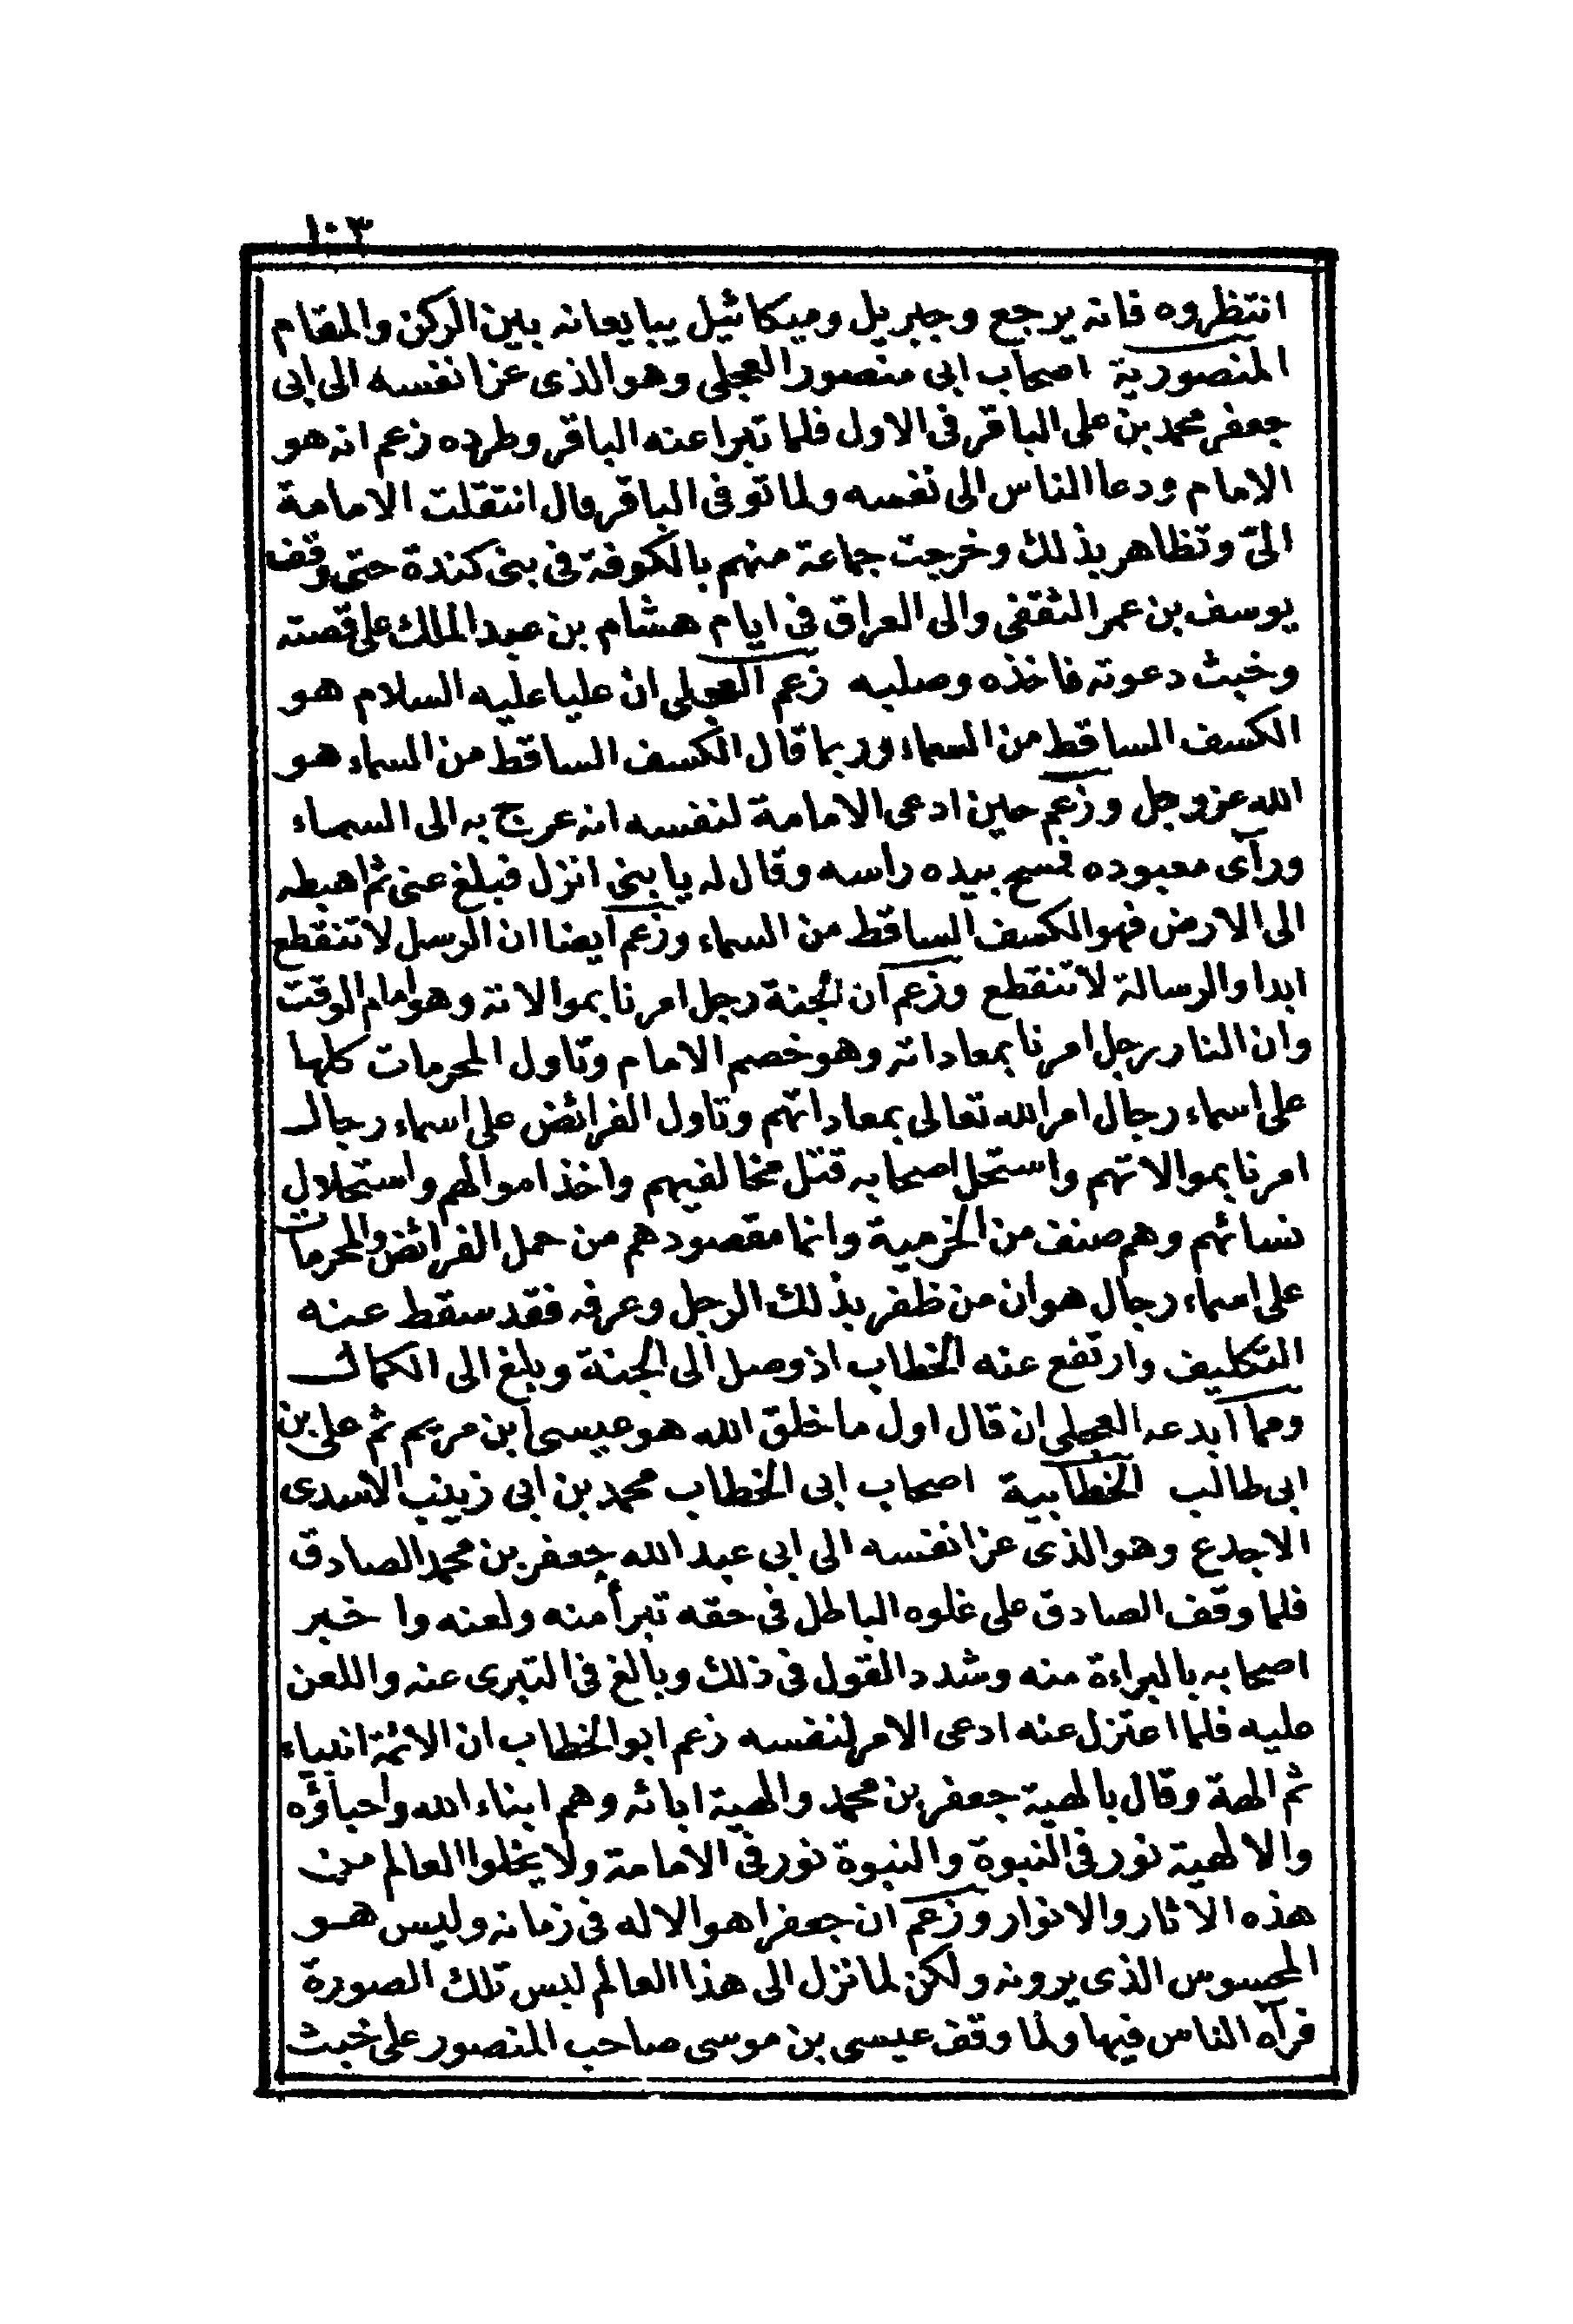 ١٠٣
انتظروه فانه يرجع وجبريل وميكائيل يبايعانه بين الركن والمقام
المنصورية اصحاب ابى منصور العجلى وهو الذى عزا نفسه الى ابى
جعفر محمد بن على الباقر فى الاول فلما تبرا عنه الباقر وطرده زعم انه هو
الامام ودعا الناس الى نفسه ولما توفى الباقر قال انتقلت الامامة
الىّ وتظاهر بذلك وخرجت جماعة منهم بالكوفة فى بنى كندة حتى وقف
يوسف بن عمر الثقفى والى العراق فى ايام هشام بن عبد الملك على قصته
وخبث دعوته فاخذه وصلبه زعم العجلى ان عليا عليه السلام هو
الكسف الساقط من السماء وربما قال الكسف الساقط من السماء هو
الله عز وجل وزعم حين ادعى الامامة لنفسه انه عرج به الى السماء
ورآى معبوده فمسح بيده راسه وقال له يا بنى انزل فبلغ عنى ثم اهبطه
الى الارض فهو الكسف الساقط من السماء وزعم ايضا ان الرسل لا تنقطع
ابدا والرسالة لا تنقطع وزعم ان الجنة رجل امرنا بموالاته وهو امام الوقت
وان النار رجل امرنا بمعاداته وهو خصم الامام وتاول المحرمات كلها
على اسماء رجال امر الله تعالى بمعاداتهم وتاول الفرائض على اسماء رجال
امرنا بموالاتهم واستحل اصحابه قتل مخالفيهم واخذ اموالهم واستحلال
نسائهم وهم صنف من الخرمية وانما مقصودهم من حمل الفرائض والمحرمات
على اسماء رجال هو ان من ظفر بذلك الرجل وعرفه فقد سقط عنه
التكليف وارتفع عنه الخطاب اذ وصل الى الجنة وبلغ الى الكمال
ومما ابدعه العجلى ان قال اول ما خلق الله هو عيسى ابن مريم ثم على بن
ابى طالب الخطابية اصحاب ابى الخطاب محمد بن ابى زينب الاسدى
الاجدع وهو الذى عزا نفسه الى ابى عبد الله جعفر بن محمد الصادق
فلما وقف الصادق على غلوه الباطل فى حقه تبرأ منه ولعنه واخبر
اصحابه بالبراءة منه وشدد القول فى ذلك وبالغ فى التبرى عنه واللعن
عليه فلما اعتزل عنه ادعى الامر لنفسه زعم ابو الخطاب ان الائمة انبياء
ثم الهة وقال بالهية جعفر بن محمد والهية ابائه وهم ابناء الله واحباؤه
والالهية نور فى النبوة والنبوة نور فى الامامة ولا يخلوا العالم من
هذه الاثار والانوار وزعم ان جعفرا هو الاله فى زمانه وليس هو
المحسوس الذى يرونه ولكن لما نزل الى هذا العالم لبس تلك الصورة
فرآه الناس فيها ولما وقف عيسى بن موسى صاحب المنصور على خبث